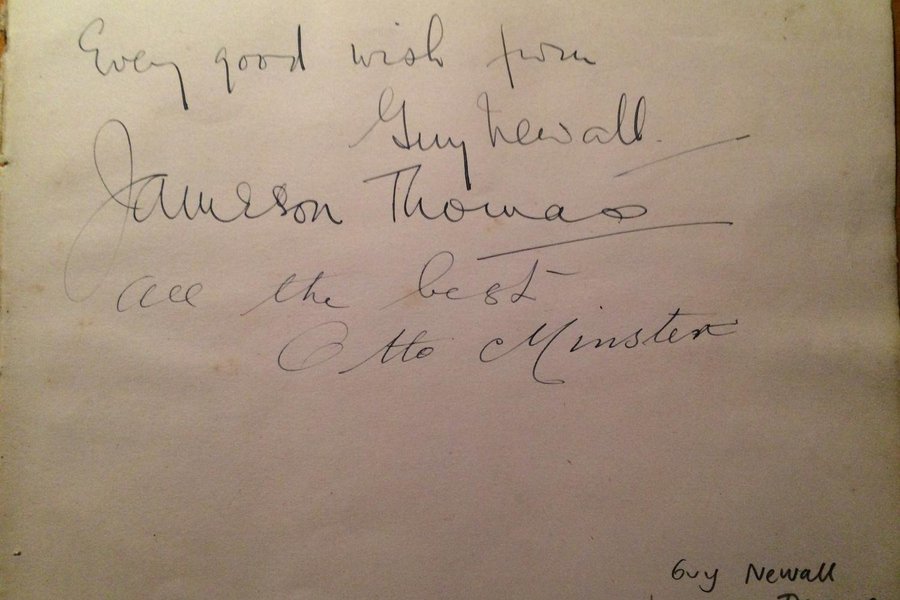 Every good wish from
Guy Newall.
Jameson Thomas
All the best
Otto Minster
Guy Newall